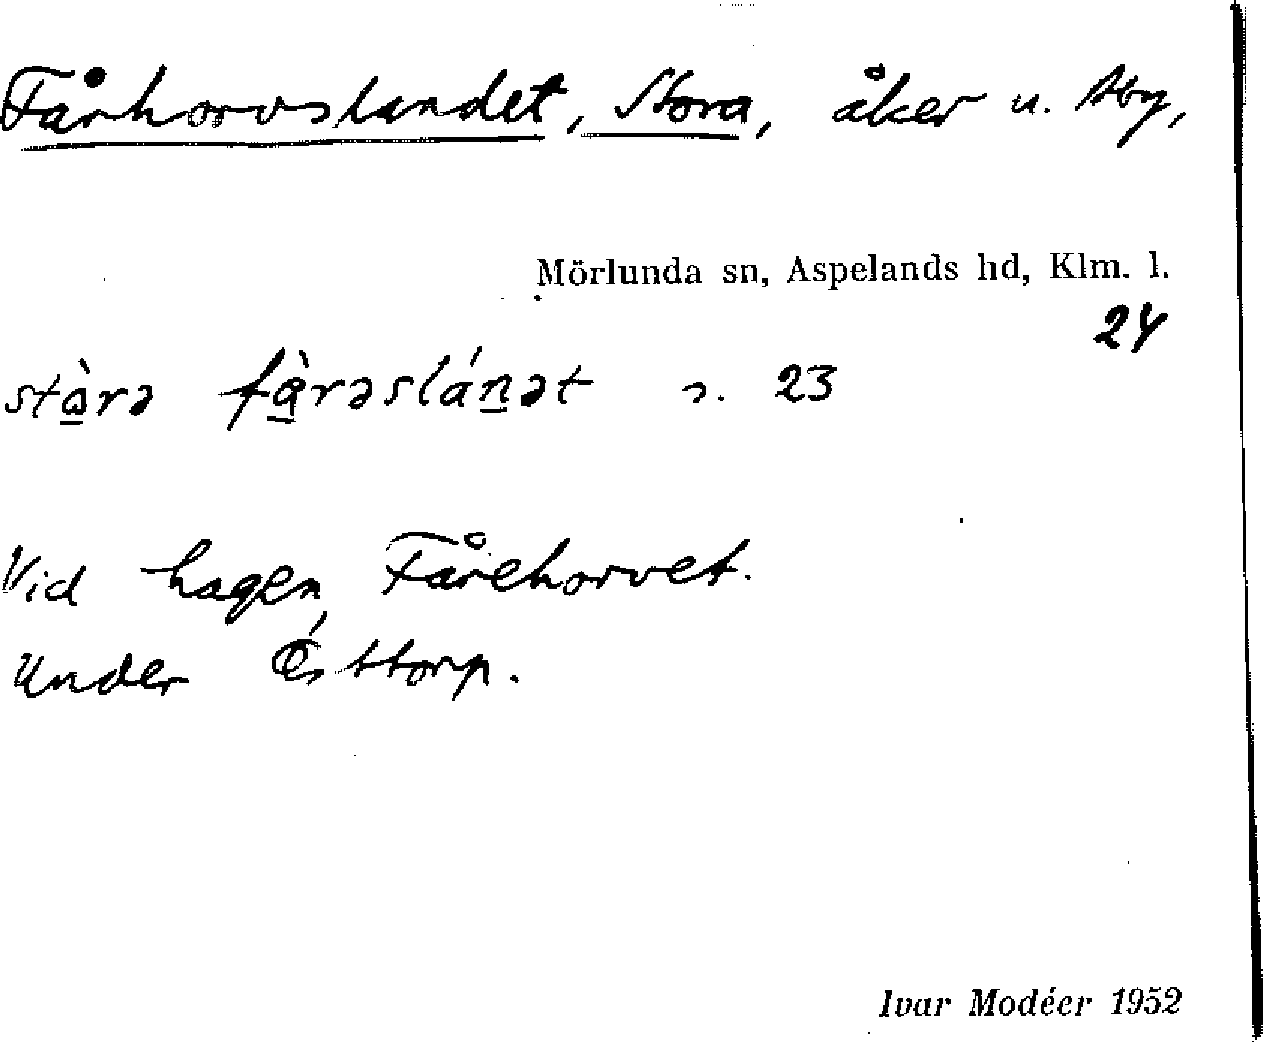 Fårhorvslandet, Stora, åker u. Åby,
Mörlunda sn, Aspelands hd, Klm. l.
24
stòrə fàrəslánət 23
Vid hagen Fårehorvet.
Under Östtorp.
Ivar Modéer 1952